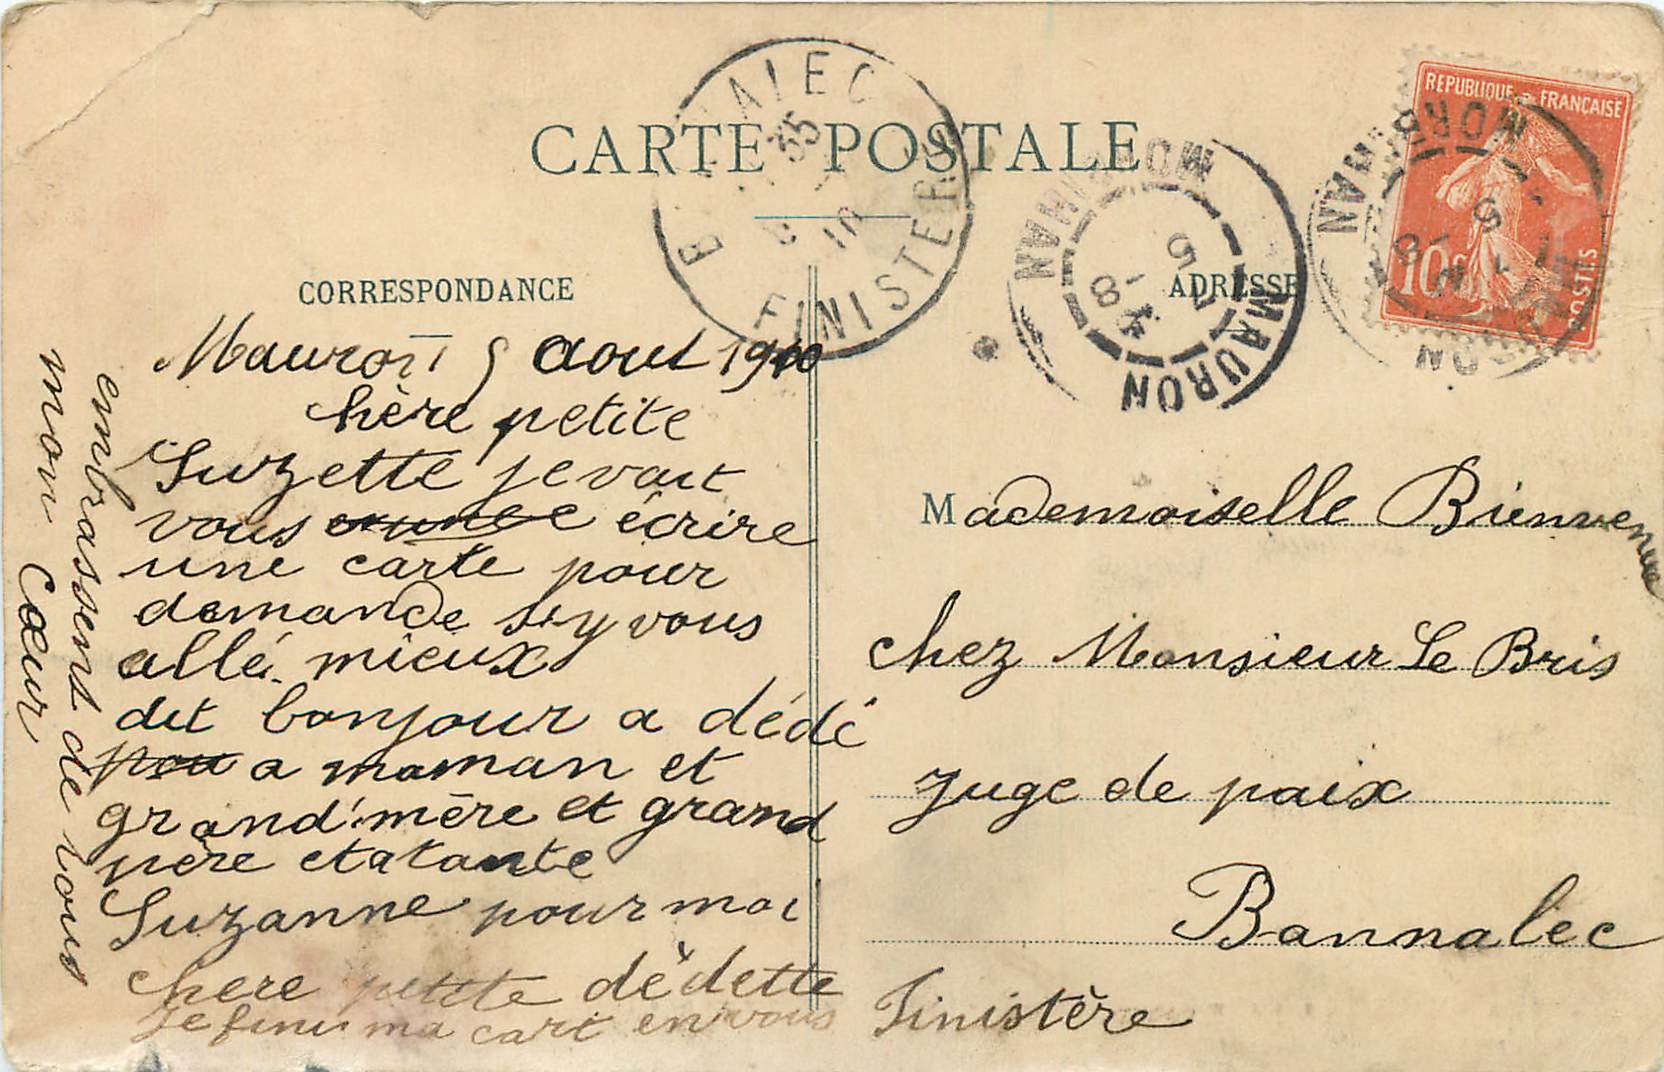 CARTE POSTALE
CORRESPONDANCE
Mauron 5 aout 1910
chère petite
Suzette je vait
vous écrire
une carte pour
demande si y vous
allé mieux
dit bonjour a dédé
a maman et
grand'mère et grand
père et a tante
Suzanne pour moi
chere petite dèdette
je fini ma cart en vous
embrassent de vous
mon cœur
ADRESSE
Mademoiselle Bienvenue
chez Monsieur Le Bris
Juge de paix
Bannalec
Finistère
REPUBLIQUE FRANÇAISE
10c
POSTES
FINISTERE
35
10
MAURON
MORBIHAN
7 5
4 - 8
MORBIHAN